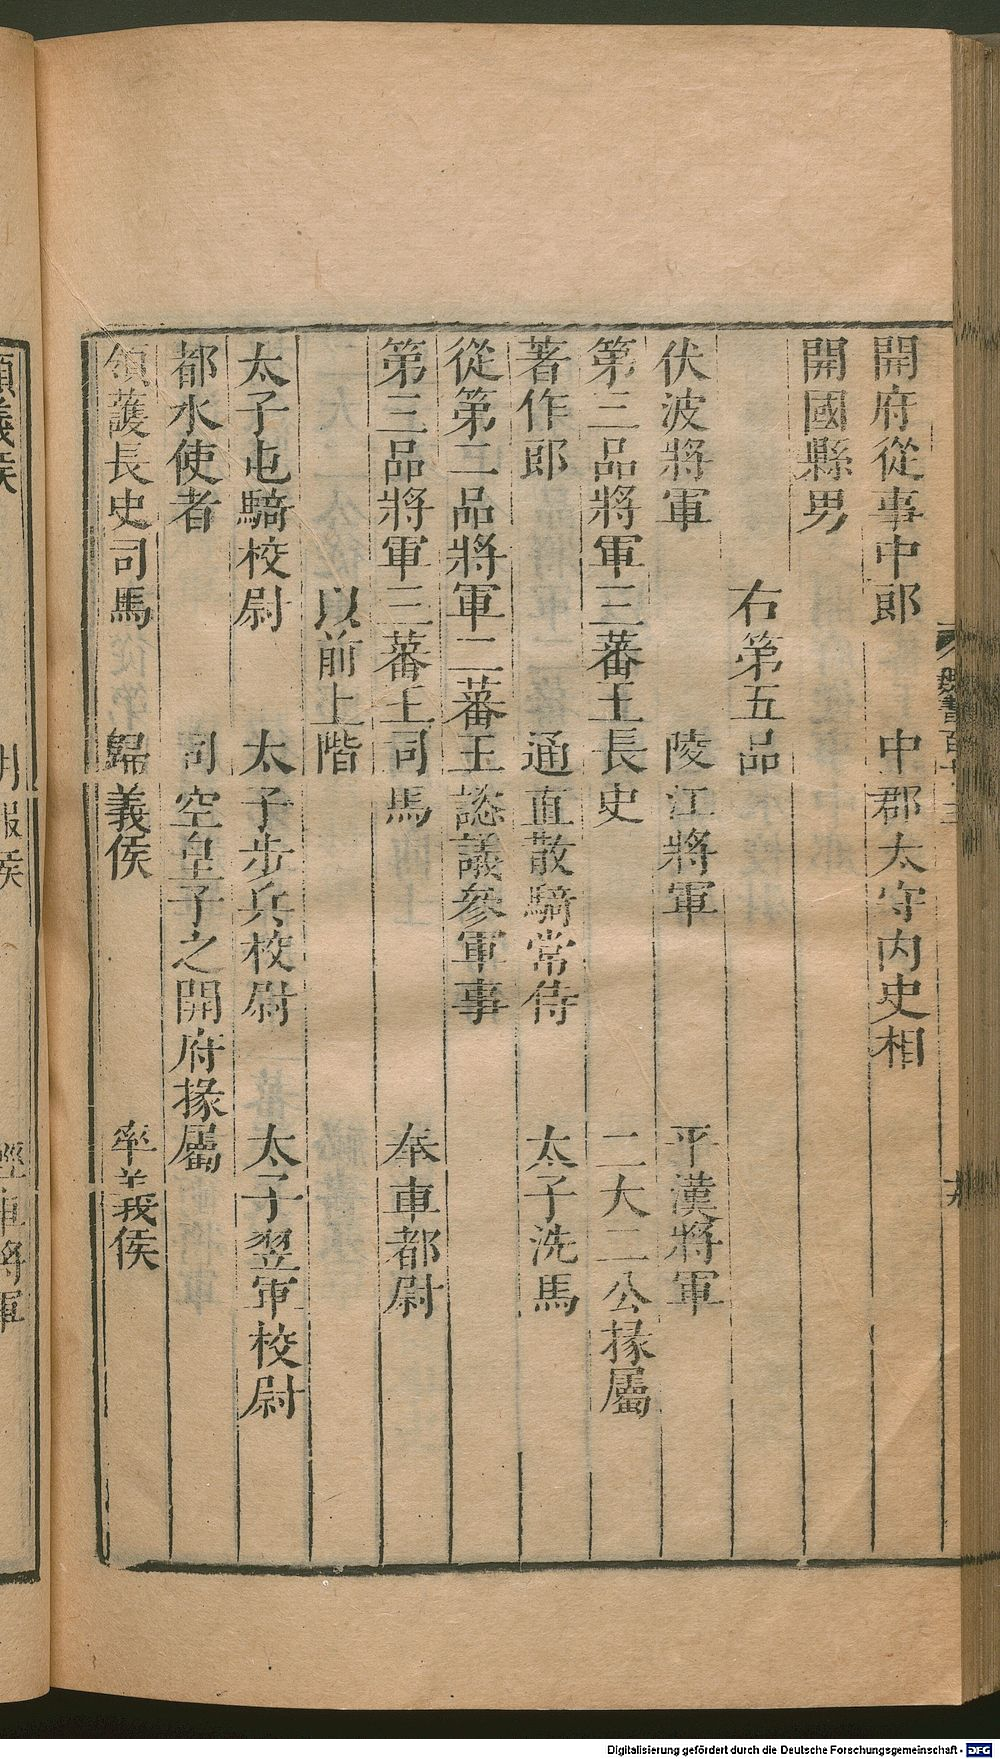 開府從事中郎　中郡太守內史相
開國縣男
右第五品
伏波將軍　陵江將軍　平漢將軍
第三品將軍三蕃王長史　二大二公掾屬
著作郎　通直散騎常侍　太子洗馬
從第二品將軍二蕃王諮議參軍事
第三品將軍三蕃王司馬　奉車都尉
以前上階
太子屯騎校尉　太子步兵校尉　太子翌軍校尉
都水使者　司空皇子之開府掾屬
領護長史司馬　歸義侯　率義侯
Digitalisierung gefördert durch die Deutsche Forschungsgemeinschaft - DFG